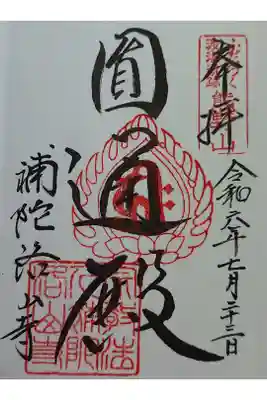 奉拝
令和元年七月二十三日
圓通殿
補陀洛山寺